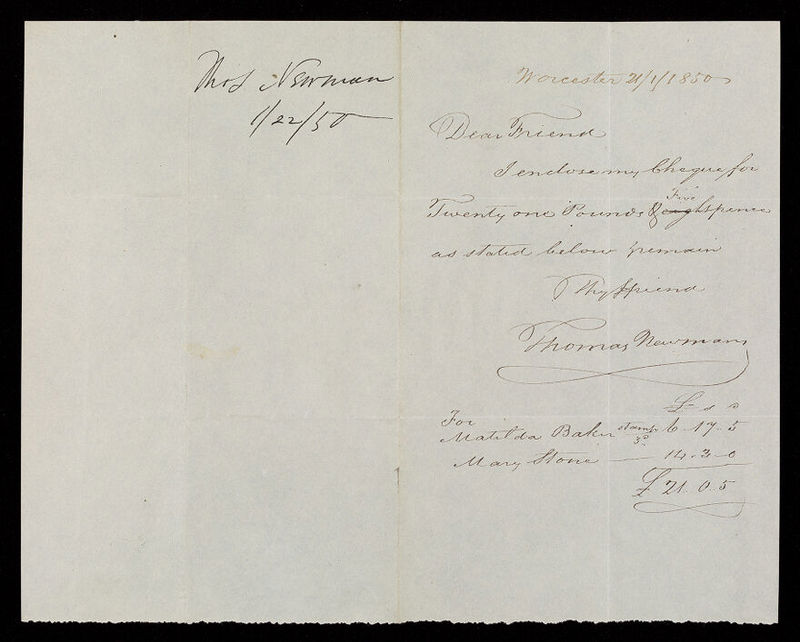 Thos Newman
1/22/50
Worcester 21/1/1850
Dear Friend
I enclose my Cheque for
Five
Twenty one Pounds & eightpence
as stated below & remain
Thy friend
Thomas Newman
£ s d
For
Matilda Baker stamp 3d 6-17-5
Mary Stone — 14-3-0
£21.0.5